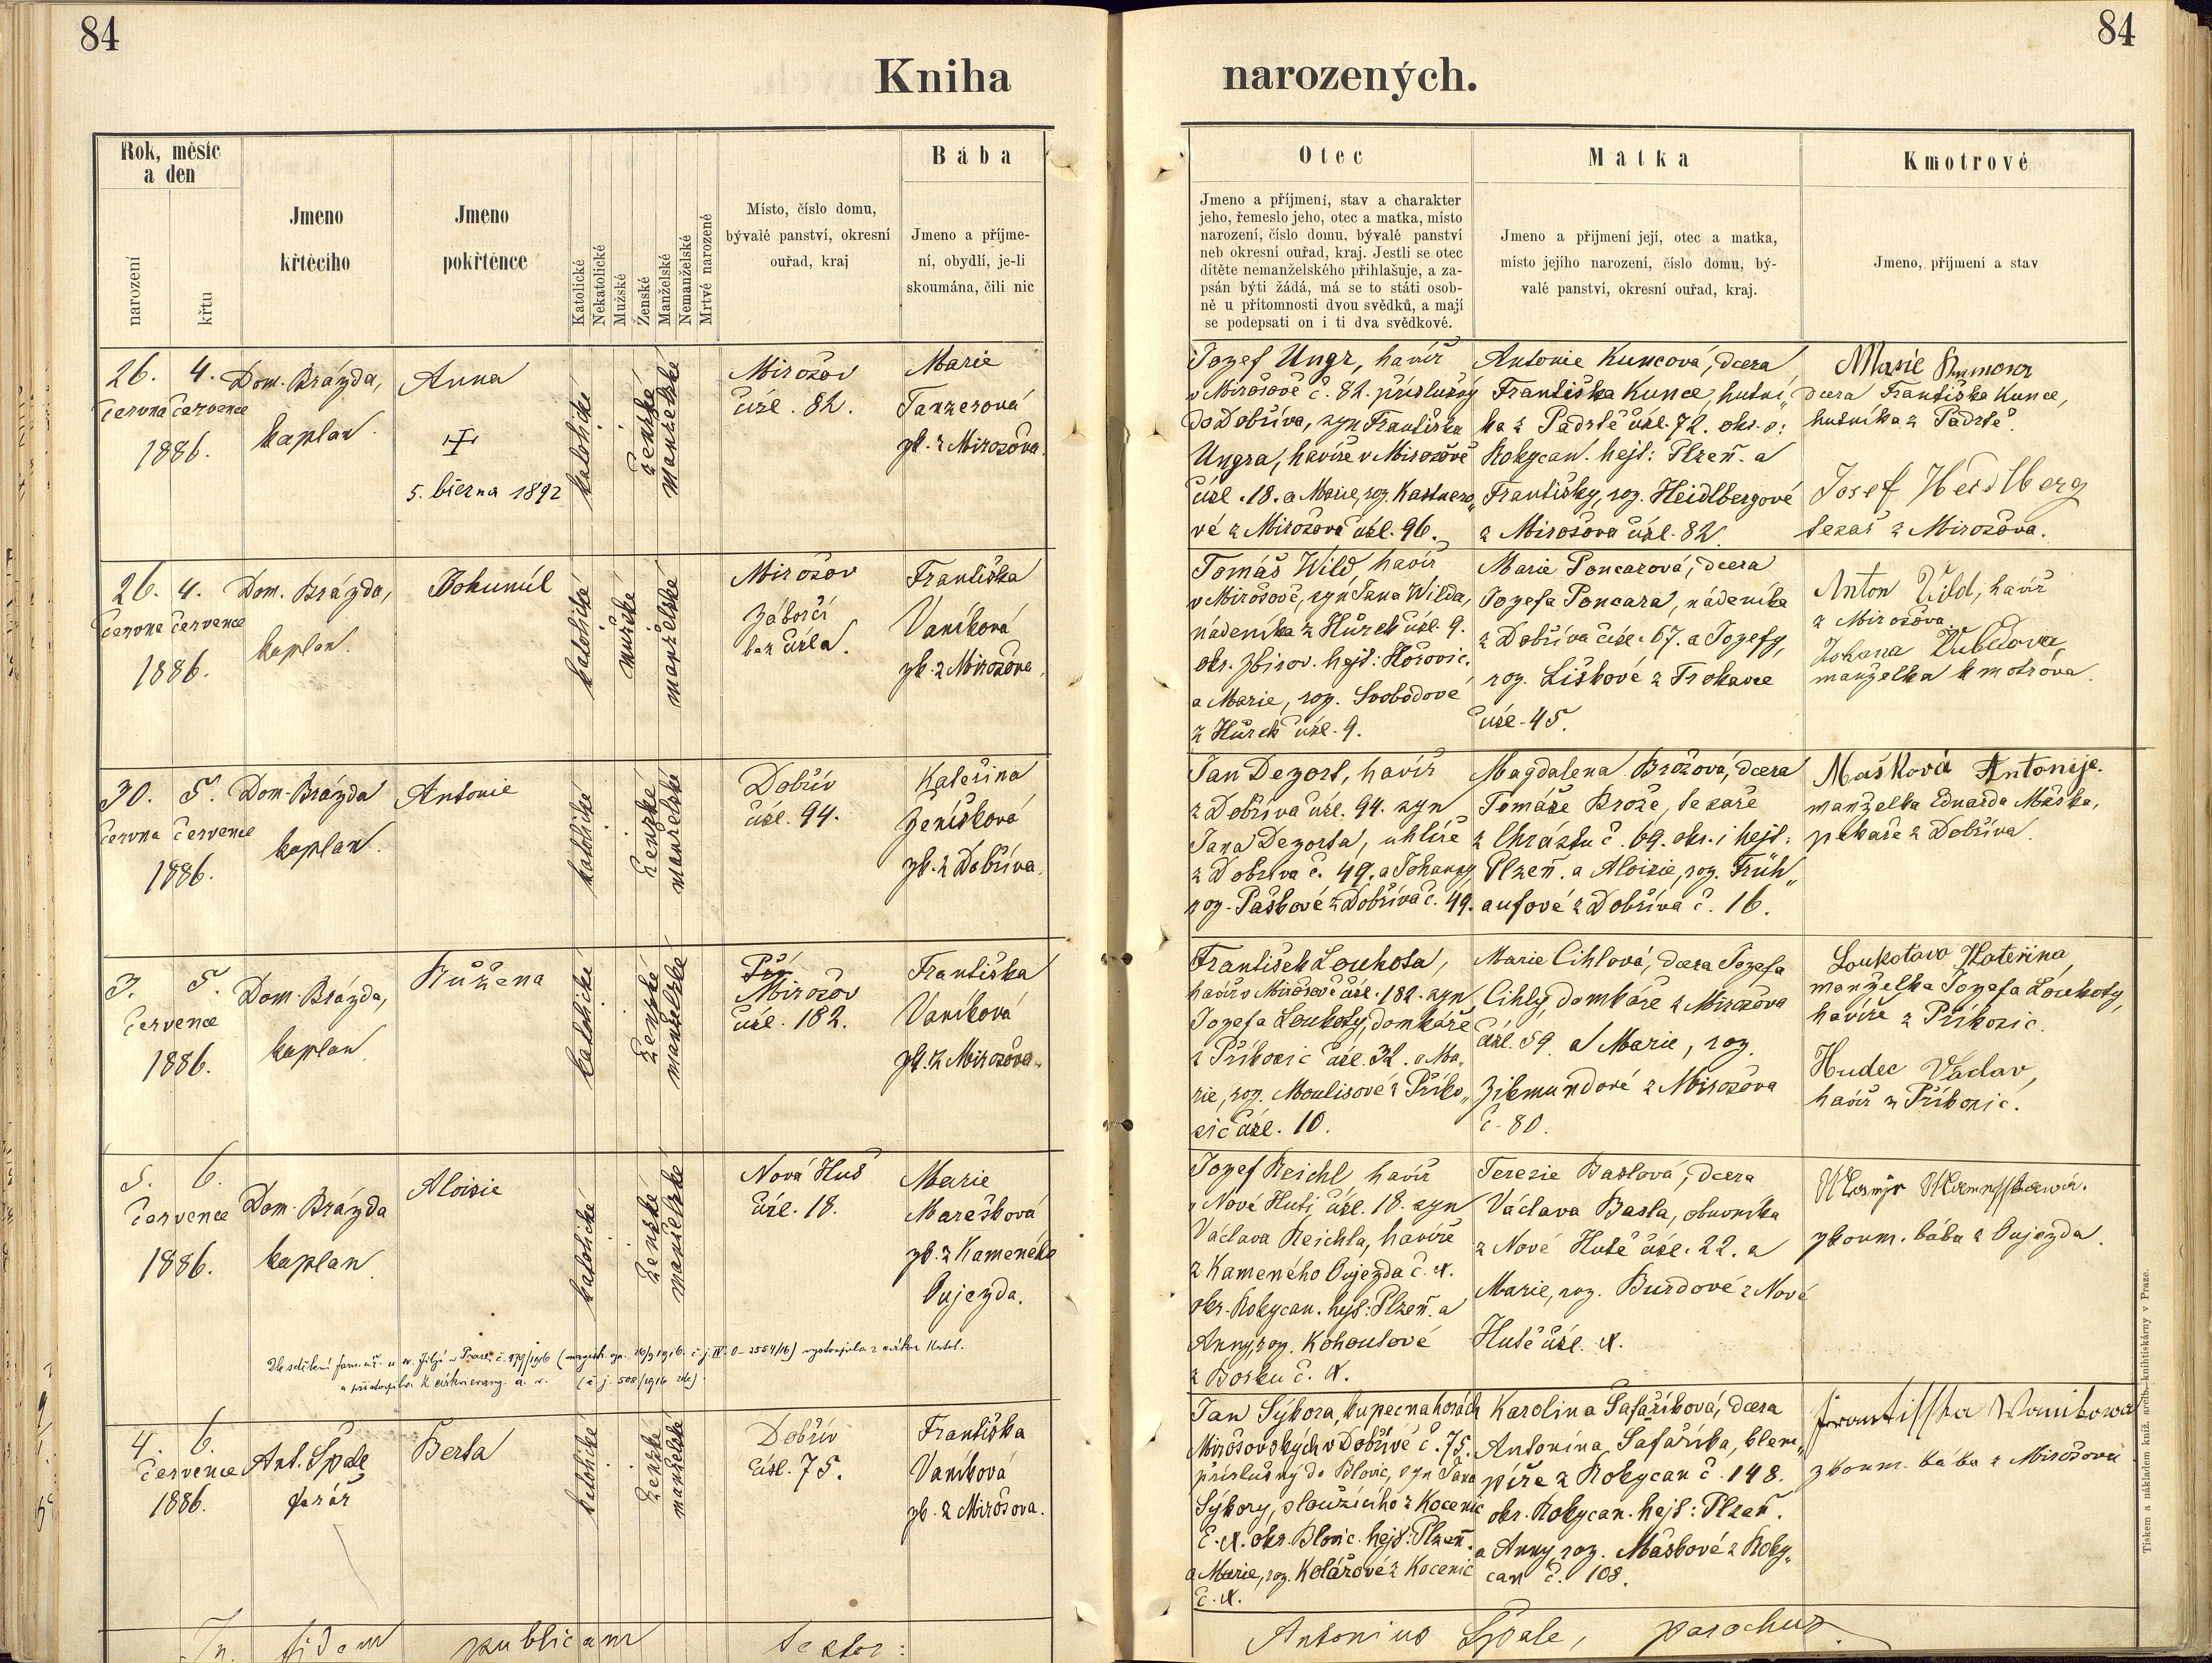 84
84
Kniha narozených.
Rok, měsíc
a den
narození
křtu
Jmeno
křtěcího
Jmeno
pokřtěnce
Katolické
Nekatolické
Mužské
Ženské
Manželské
Nemanželské
Mrtvé narozené
Místo, číslo domu,
bývalé panství, okresní
ouřad, kraj
Bába
Jmeno a příjme-
ní, obydlí, je-li
skoumána, čili nic
Otec
Jmeno a příjmení, stav a charakter
jeho, řemeslo jeho, otec a matka, místo
narození, číslo domu, bývalé panství
neb okresní ouřad, kraj. Jestli se otec
dítěte nemanželského přihlašuje, a za-
psán býti žádá, má se to státi osob-
ně u přítomnosti dvou svědků, a mají
se podepsati on i ti dva svědkové.
Matka
Jmeno a přijmení její, otec a matka,
místo jejího narození, číslo domu, bý-
valé panství, okresní ouřad, kraj.
Kmotrové
Jmeno, příjmení a stav
26. 4.
června července
1886.
Dom. Brázda,
kaplan.
Anna
5. března 1892
katolické
ženské
manželské
Mirošov
čísl. 82.
Marie
Tanzerová
zk. z Mirošova.
Jozef Ungr, havíř
v Mirošově č. 82. příslušný
do Dobříva, syn Františka
Ungra, havíře v Mirošově
čísl. 18. a Marie, roz. Kastnero„
vé z Mirošova čísl. 96.
Antonie Kuncová, dcera
Františka Kunce, hutní„
ka z Padrtě čísl. 72. okr. o:
Rokycan. hejt: Plzeň. a
Františky, roz. Heidlbergové
z Mirošova čísl. 82.
Marie
dcera Františka Kunce,
hutníka z Padrtě.
Josef Heidlberg
tesař z Mirošova.
26. 4.
června července
1886.
Dom. Brázda,
kaplan.
Bohumil
katolické
mužské
manželské
Mirošov
Záborčí
bez čísla.
Františka
Vaníková
zk. z Mirošova.
Tomáš Wild havíř
v Mirošově, syn Jana Wilda,
nádeníka z Hůrek čísl. 9.
okr. Zbirov. hejt: Hořovic.
a Marie, roz. Svobodové
z Hůrek čísl. 9.
Marie Poncarová, dcera
Jozefa Poncara, nádeníka
z Dobříva čísl. 67. a Jozefy,
roz. Liškové z Trokavce
čísl. 45.
Anton Vild, havíř
z Mirošova
Johana
manželka kmotrova.
30. 5.
června července
1886.
Dom. Brázda
kaplan.
Antonie
katolické
ženské
manželské
Dobřív
čísl. 94.
Kateřina
Ženíšková
zk. z Dobříva.
Jan Dezort, havíř
z Dobříva čísl. 94. syn
Jana Dezorta, uhlíře
z Dobříva č. 49. a Johanny
roz. Paškové z Dobříva č. 49.
Magdalena Brožová, dcera
Tomáše Brože, tesaře
z Chrástu č. 69. okr. i hejt:
Plzeň. a Aloisie, roz. Früh„
aufové z Dobříva č. 16.
Mašková Antonije.
manželka Eduarda Maška,
pekaře z Dobříva.
3. 5.
července
1886.
Dom. Brázda,
kaplan.
Růžena
katolické
ženské
manželské
Mirošov
čísl. 182.
Františka
Vaníková
zk. z Mirošova.
František Loukota,
havíř v Mirošově čísl. 182. syn
Jozefa Loukoty, domkáře
z Příkosic čísl. 32. a Ma„
rie, roz. Moulisové z Příko„
sic čísl. 10.
Marie Cihlová, dcera Jozefa
Cihly, domkáře z Mirošova
čísl. 59 a Marie, roz.
Zikmundové z Mirošova
č. 80.
Loukotova Kateřina,
manželka Jozefa Loukoty,
havíře z Příkosic.
Hudec Václav,
havíř z Příkosic.
5. 6.
července
1886.
Dom. Brázda
kaplan.
Aloisie
katolické
ženské
manželské
Nová Huť
čísl. 18.
Marie
Marešková
zk. z Kameného
Oujezda.
Jozef Reichl havíř
v Nové Huti čísl. 18. syn
Václava Reichla, havíře
z Kameného Oujezda č. X.
okr. Rokycan. hejt: Plzeň. a
Anny, roz. Kohoutové
z Borku č. X.
Terezie Baslová, dcera
Václava Basla, obuvníka
z Nové Hutě čísl. 22. a
Marie, roz. Burdové z Nové
Hutě čísl. X.
zkoum. bába z Oujezda.
Dle sdělení fam. úř. u sv. Jiljí v Praze č. 179/1916 vystoupila z církve katol.
a přistoupila k církvi evang. a. v. (č. j. 508/1916 zde).
4. 6.
července
1886.
Ant. Špale
farář
Berta
katolické
ženské
manželské
Dobřív
čísl. 75.
Františka
Vaníková
zk. z Mirošova.
Jan Sýkora, kupec na horách
Mirošovských v Dobřívě č. 75.
příslušný do Blovic, syn Jana
Sýkory, sloužícího z Kocenic
č. X. okr. Blovic. hejt: Plzeň.
a Marie, roz. Kolářové z Kocenic
č. X.
Karolina Šafaříková, dcera
Antonína Šafaříka, klem„
píře z Rokycan č. 148.
okr. Rokycan. hejt: Plzeň.
a Anny, roz. Maškové z Roky„
can č. 108.
Frantisska Wanikowa
zkoum. bába z Mirošova
In fidem publicam testor:
Antonius Špale, parochus.
Tiskem a nákladem kníž. arcib. knihtiskárny v Praze.